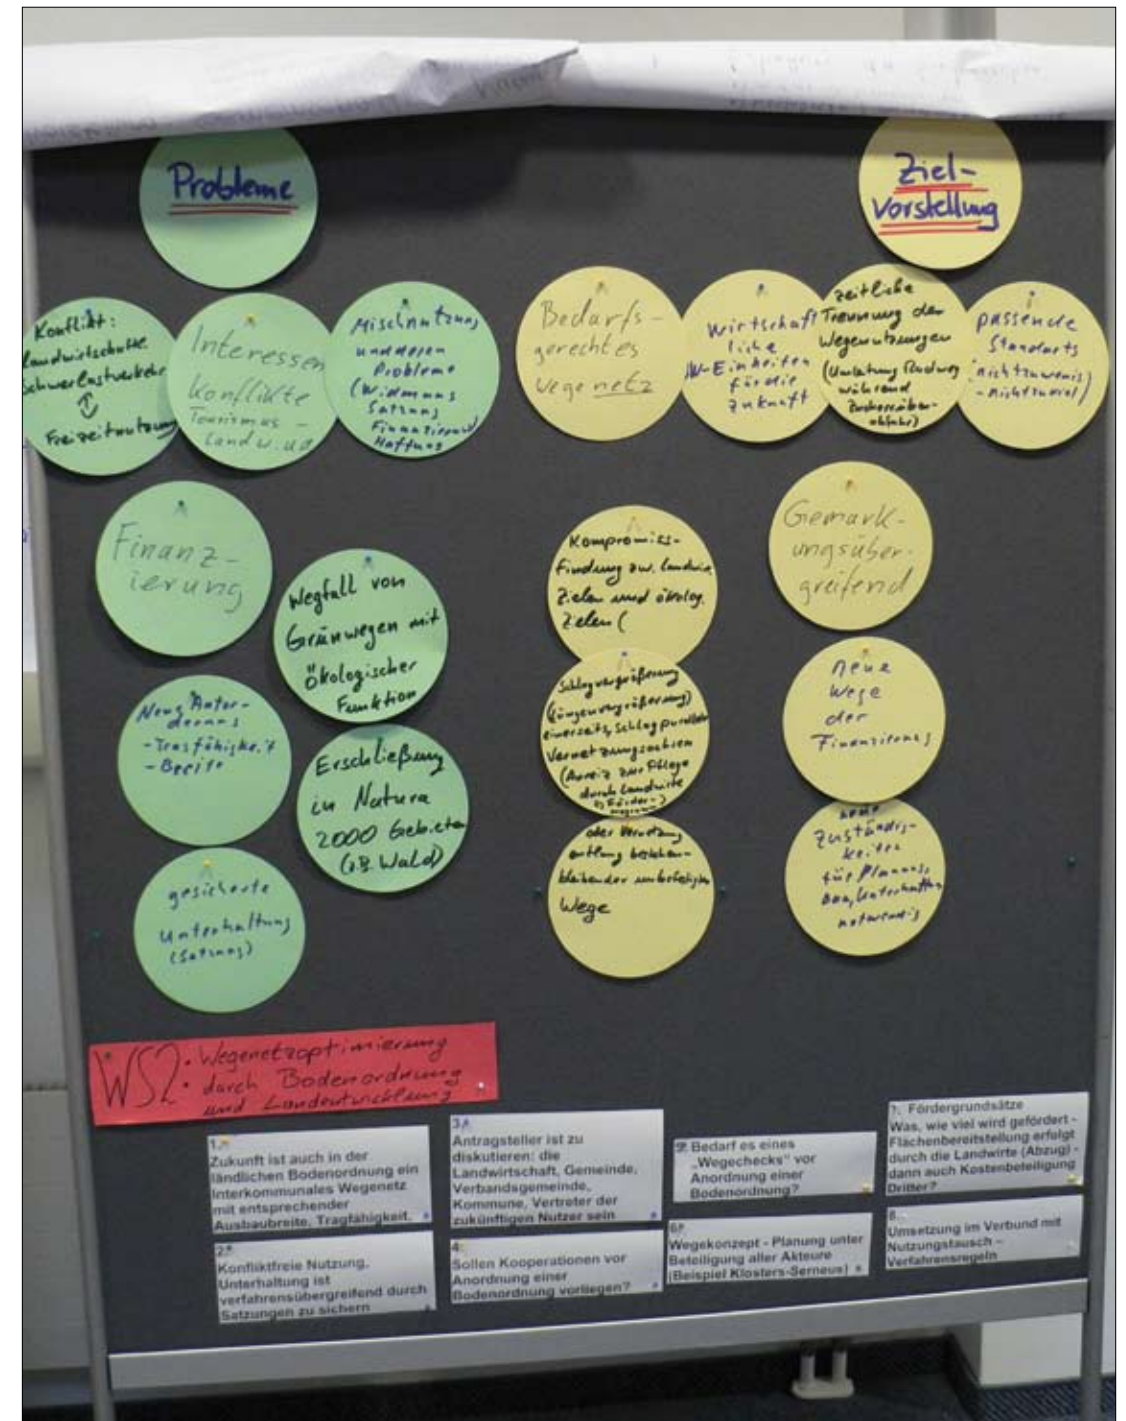 Probleme
Ziel-
vorstellung
Konflikt:
Landwirtschaftl.
Schwerlastverkehr
Freizeitnutzung
Interessen
Konflikte
Tourismus -
Landw. ua
Mischnutzung
und deren
Probleme
(Widmung
Satzung
Finanzierung
Haftung
Bedarfs-
gerechtes
wegenetz
Wirtschaft
liche
LW-Einheiten
für die
Zukunft
zeitliche
Trennung der
Wegenutzungen
(Umleitung Radweg
während
Zuckerrüben-
abfuhr)
passende
Standarts
- nicht zuviel)
Finanz-
ierung
Wegfall von
Grünwegen mit
Ökologischer
Funktion
Kompromiss-
Findung zw. landwi.
Zielen und ökolog.
Zielen (
Gemark-
ungsüber-
greifend
Neue Anfor-
derung
- Tragfähigkeit
- Breite
Erschließung
in Natura
2000 Gebieten
(z.B. Wald)
Schlagvergrößerung
(Längenvergrößerung)
einerseits, Schlag
Vernetzungsachsen
(Anreiz zur Pflege
durch Landwirte
neue
Wege
der
Finanzierung
gesicherte
Unterhaltung
(Satzung)
oder Vernetzung
entlang bestehen-
bleibender unbefestigter
Wege
neue
Zuständig-
keiten
für Planung,
Bau, Unterhaltung
notwendig
WS2: Wegenetzoptimierung
durch Bodenordnung
und Landentwicklung
1.
Zukunft ist auch in der
ländlichen Bodenordnung ein
Interkommunales Wegenetz
mit entsprechender
Ausbaubreite, Tragfähigkeit.
2.
Konfliktfreie Nutzung,
Unterhaltung ist
verfahrensübergreifend durch
Satzungen zu sichern
3.
Antragsteller ist zu
diskutieren: die
Landwirtschaft, Gemeinde,
Verbandsgemeinde,
Kommune, Vertreter der
zukünftigen Nutzer sein
4.
Sollen Kooperationen vor
Anordnung einer
Bodenordnung vorliegen?
Bedarf es eines
„Wegechecks“ vor
Anordnung einer
Bodenordnung?
6.
Wegekonzept - Planung unter
Beteiligung aller Akteure
(Beispiel Klosters-Serneus)
7. Fördergrundsätze
Was, wie viel wird gefördert -
Flächenbereitstellung erfolgt
durch die Landwirte (Abzug) -
dann auch Kostenbeteiligung
Dritter?
8.
Umsetzung im Verbund mit
Nutzungstausch –
Verfahrensregeln